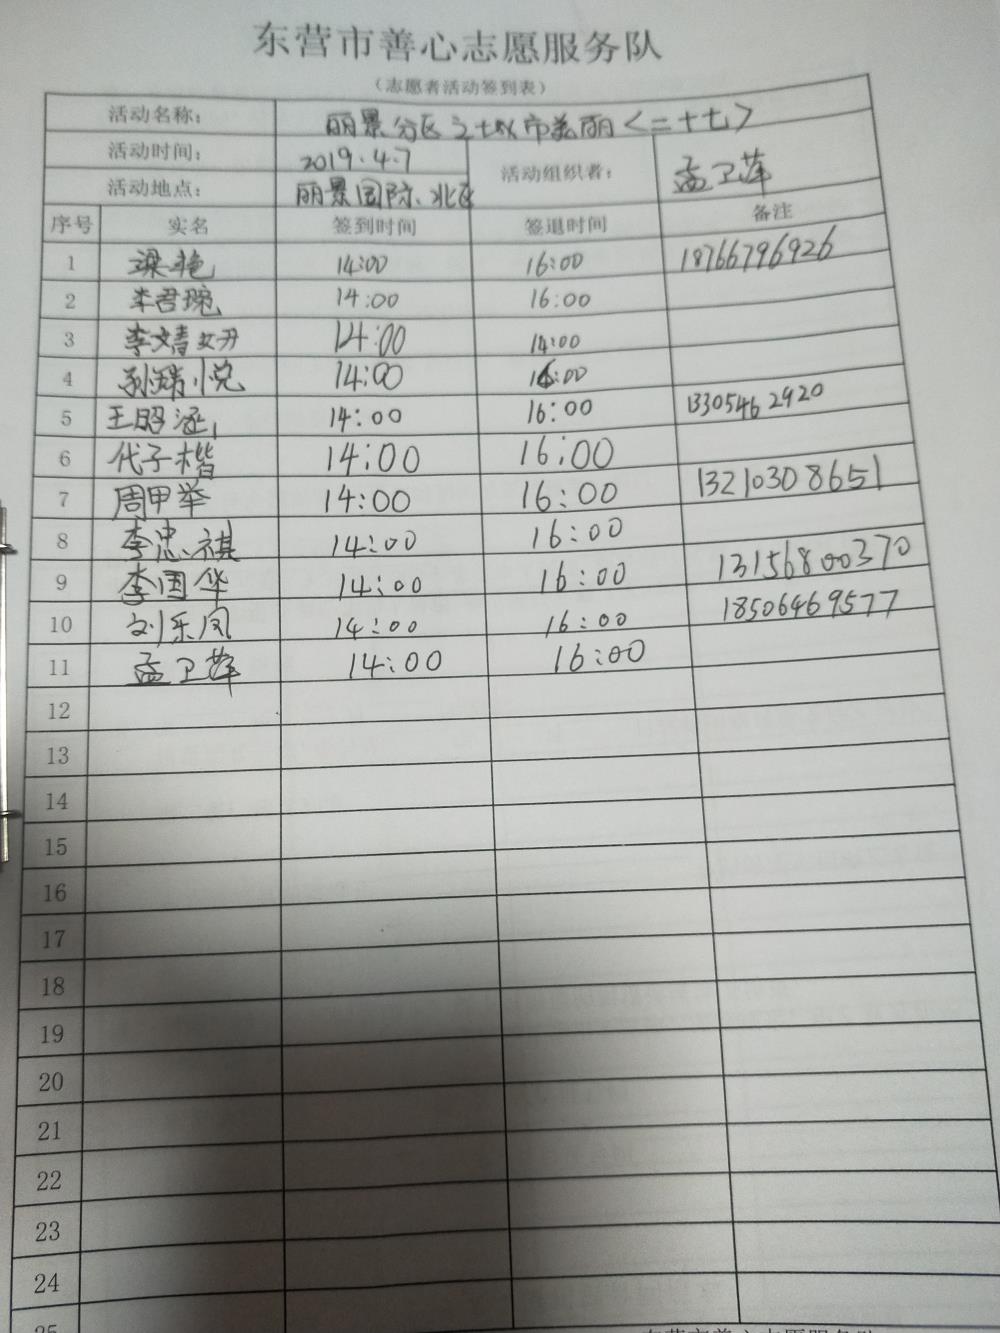 东营市善心志愿服务队
（志愿者活动签到表）
活动名称： 丽景分区之城市美丽＜二十七＞
活动时间： 2019.4.7 活动组织者： 孟卫萍
活动地点： 丽景国际、北区
序号 实名 签到时间 签退时间 备注
1 梁艳 14:00 16:00 18766796926
2 李君琬 14:00 16:00
3 李文婧 14:00 14:00
4 14:00 16:00
5 王昭涵 14:00 16:00 13305462920
6 代子楷 14:00 16:00
7 周甲举 14:00 16:00 13210308651
8 李忠祺 14:00 16:00
9 李国华 14:00 16:00 13156800370
10 刘乐凤 14:00 16:00 18506469577
11 孟卫萍 14:00 16:00
12
13
14
15
16
17
18
19
20
21
22
23
24
25